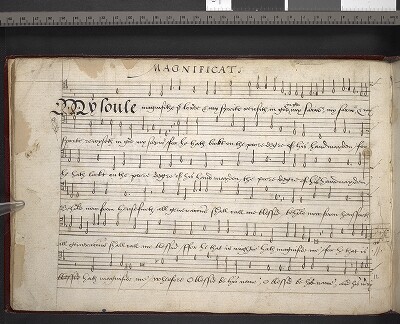 MAGNIFICAT.
My soule magnifithe ye lorde & my sprete reioysith in god my savior my savior & my
sprete reioysith in god my savior for he hath lookt on the poore degre of his hand mayden for
he hath lookt on the poore degre of his hand mayden the poore degre of his hand mayden
behold now from hensforth all generacions shall call me blessed behold now from hensforth
all generacions shall call me blessed ffor he that is myghtie hath magnified me for he that is
hath magnified me wherfore O blessed be his name O blessed be his name and his